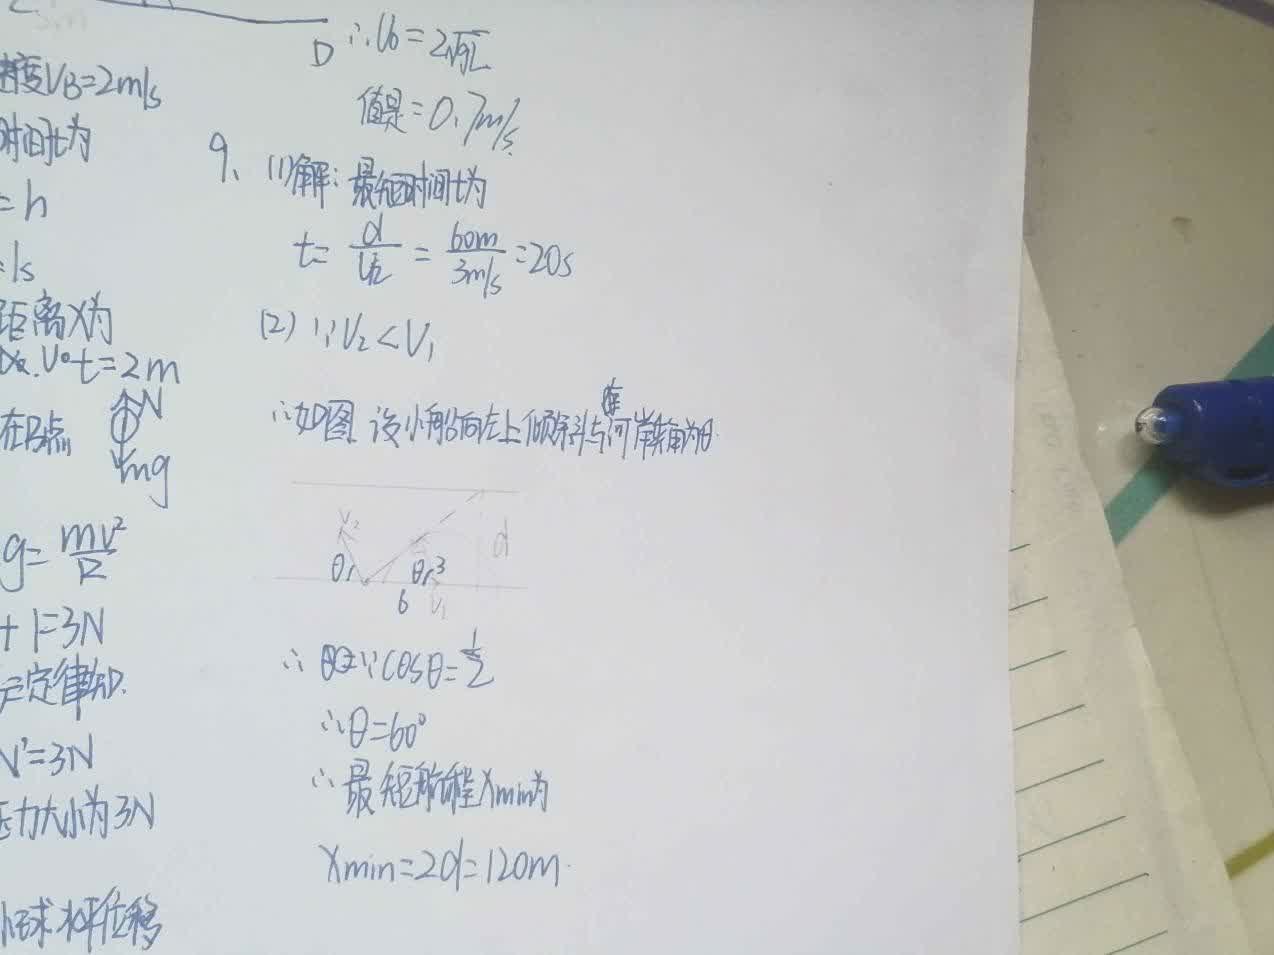 速度VB=2m/s
时间t为
=h
=1s
距离X为
V0t=2m
在B点
N
mg
g=mv²/R
+1=3N
定律知.
N'=3N
压力大小为3N
小球水平位移
D
∴V0=2√gL
值是=0.7m/s.
9、(1)解:最短时间t为
t=d/V2=60m/3m/s=20s
(2)∵V2<V1
∴如图 设小船向左上倾斜与河岸夹角为θ.
V2
θ
θ
3
6
V1
d
∴ ∵cosθ=1/2
∴θ=60°
∴最短航程Xmin为
Xmin=2d=120m.